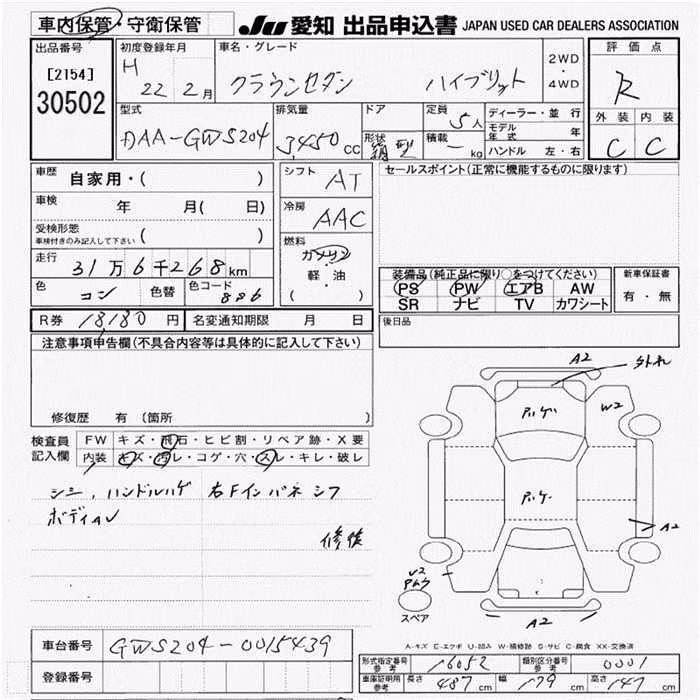 車内保管・守衛保管
JU 愛知 出品申込書 JAPAN USED CAR DEALERS ASSOCIATION
出品番号
[2154]
30502
初度登録年月
H 22 2月
車名・グレード
クラウンセダン ハイブリット
2WD
・
4WD
評価点
R
外装 内装
C C
型式
DAA-GWS204
排気量
3,450 CC
ドア
形状
箱型
定員
5人
積載
- kg
ディーラー・並行
モデル年式 年
ハンドル 左・右
車歴
自家用・( )
車検 年 月( 日)
受検形態
車検付きのみ記入して下さい ( )
走行
31万6千268km
色
コン
色替
色コード
886
シフト
AT
冷房
AAC
燃料
ガソリン
軽・油
( )
セールスポイント(正常に機能するものに限ります)
装備品(純正品に限り○をつけてください)
PS PW エアB AW
SR ナビ TV カワシート
新車保証書
有・無
後日品
R券 18,180 円 名変通知期限 月 日
注意事項申告欄(不具合内容等は具体的に記入して下さい)
修復歴 有 〔箇所
検査員
記入欄
FW キズ・飛石・ヒビ割・リペア跡・X要
内装 キズ・汚レ・コゲ・穴・スレ・キレ・破レ
シミ,ハンドルハゲ 右Fインパネシフ
ボディAU
修後
A2
外れ
W2
A2
U2
スペア
A2
A-キズ E-エクボ U-凹み W-補修跡 S-サビ C-腐食 XX-交換済
車台番号 GWS204-0015439
登録番号
形式指定番号
参考
16052
類別区分番号
参考
0001
車庫証明用
参考
長さ 487 cm 幅 179 cm 高さ 147 cm